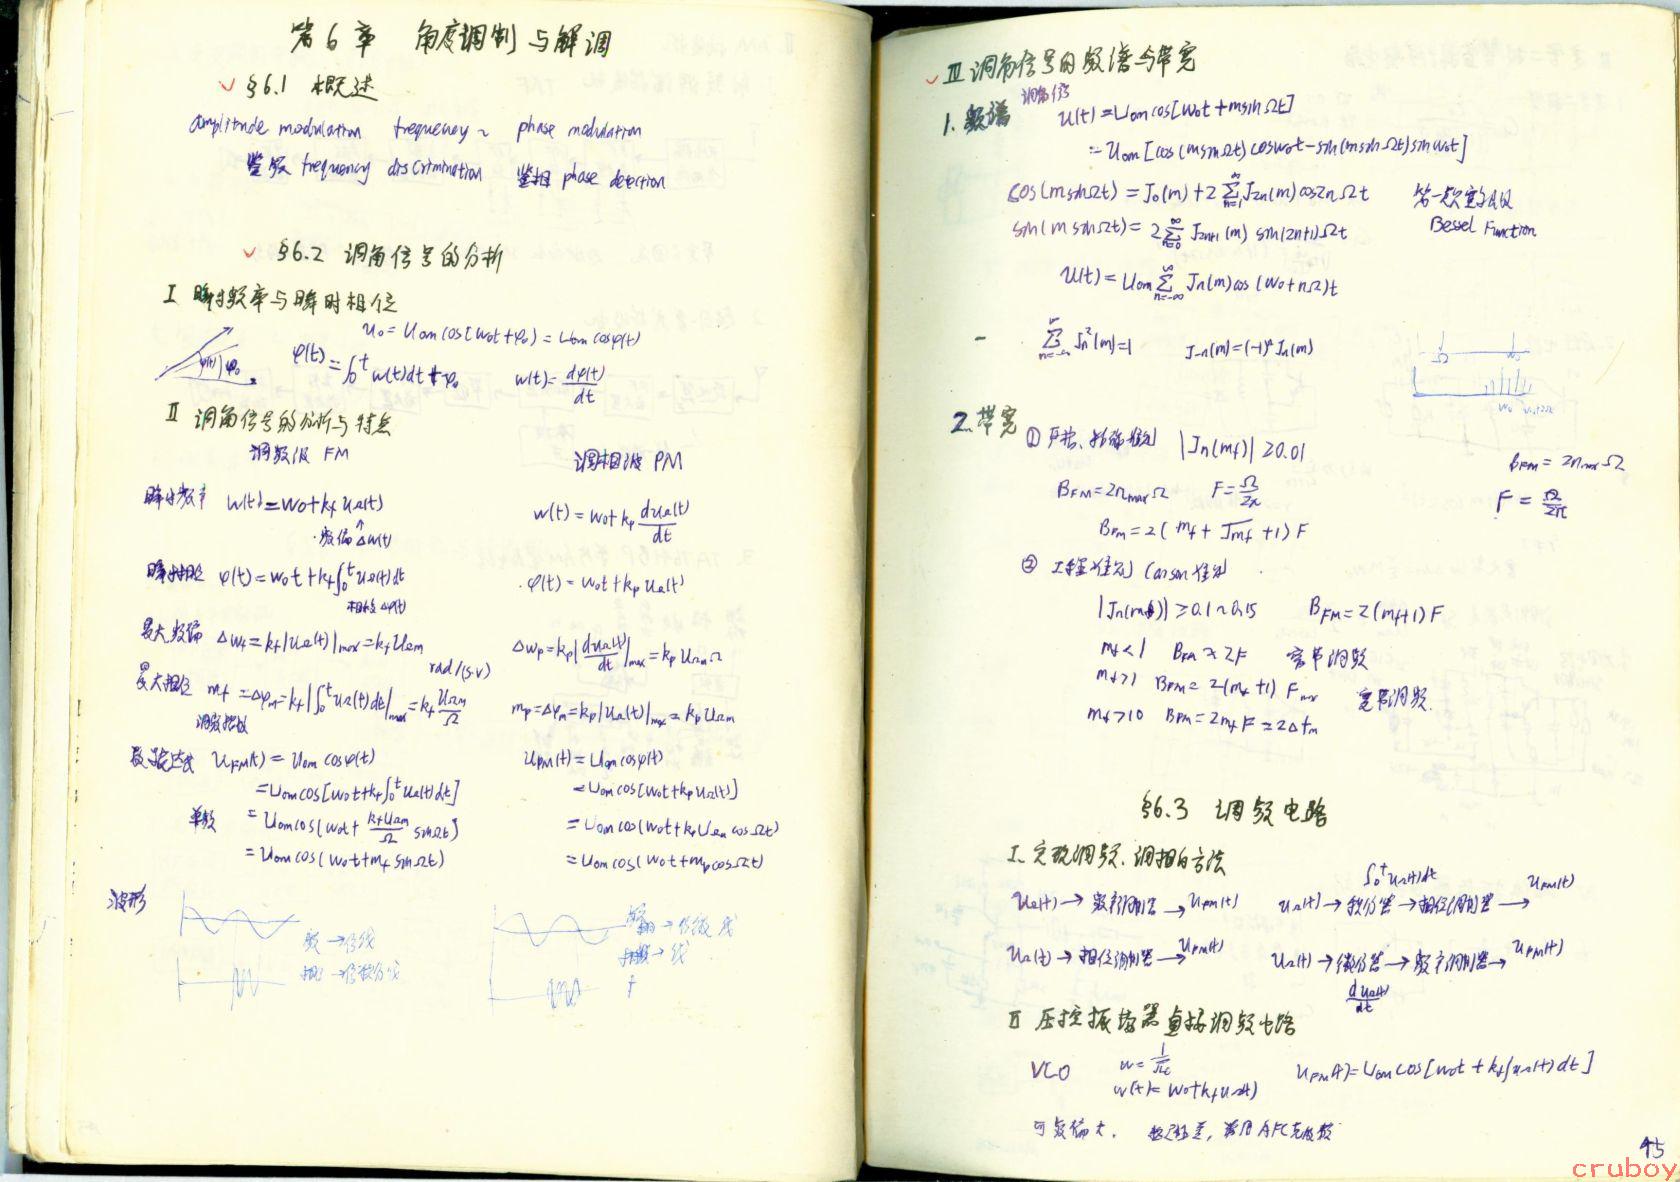 第6章 角度调制与解调
§6.1 概述
amplitude modulation frequency ~ phase modulation
鉴频 frequency discrimination 鉴相 phase detection
§6.2 调角信号的分析
I 瞬时频率与瞬时相位
u₀ = Uom cos[ω₀t+φ₀) = Uom cosφ(t)
φ(t) = ∫₀ᵗ ω(t)dt + φ₀ ω(t) = dφ(t)/dt
φ(t) φ₀
II 调角信号的分析与特点
调频波 FM 调相波 PM
瞬时频率 ω(t) = ω₀+kf uΩ(t) ω(t) = ω₀+kp duΩ(t)/dt
频偏 Δω(t)
瞬时相位 φ(t) = ω₀t+kf∫₀ᵗ uΩ(t)dt φ(t) = ω₀t+kp uΩ(t)
相移 Δφ(t)
最大频偏 Δωf = kf|uΩ(t)|max = kf UΩm Δωp = kp|duΩ(t)/dt|max = kp UΩm Ω
rad/(s·v)
最大相位 mf = Δφm = kf|∫₀ᵗ uΩ(t)dt|max = kf UΩm/Ω mp = Δφm = kp|uΩ(t)|max = kp UΩm
调频指数
数学表达式 uFM(t) = Uom cosφ(t) uPM(t) = Uom cosφ(t)
= Uom cos[ω₀t+kf∫₀ᵗ uΩ(t)dt] = Uom cos[ω₀t+kp uΩ(t)]
单频 = Uom cos(ω₀t+ kf UΩm/Ω sinΩt) = Uom cos(ω₀t+kp UΩm cosΩt)
= Uom cos(ω₀t+mf sinΩt) = Uom cos(ω₀t+mp cosΩt)
波形
III 调角信号的频谱与带宽
1. 频谱 调角信号 u(t) = Uom cos[ω₀t+m sinΩt]
= Uom[cos(m sinΩt)cosω₀t−sin(m sinΩt)sinω₀t]
cos(m sinΩt) = J₀(m)+2 ∑n=1^∞ J2n(m)cos2nΩt
sin(m sinΩt) = 2 ∑n=0^∞ J2n+1(m) sin(2n+1)Ωt
Bessel Function
u(t) = Uom ∑n=-∞^∞ Jn(m)cos(ω₀+nΩ)t
∑n=-∞^∞ Jn²(m)=1 J-n(m)=(-1)ⁿJn(m)
2. 带宽
① |Jn(mf)| ≥0.01
BFM = 2nmaxΩ
BFM=2nmaxΩ F=Ω/2π
F = Ω/2π
BFM=2(mf+√mf+1)F
② 工程准则 Carson准则
|Jn(mf)|≥0.1~0.15 BFM=2(mf+1)F
mf<1 BFM≈2F 窄带调频
mf>1 BFM=2(mf+1)Fmax 宽带调频.
mf>10 BFM=2mfF=2Δfm
§6.3 调频电路
I. 实现调频、调相的方法
∫₀ᵗ uΩ(t)dt
uΩ(t)→频率调制器→uFM(t) uΩ(t)→积分器→相位调制器→uFM(t)
uΩ(t)→相位调制器→uPM(t) uΩ(t)→微分器→频率调制器→uPM(t)
duΩ(t)/dt
II 压控振荡器直接调频电路
VCO ω=1/√LC
ω(t)=ω₀+kf uΩ(t) uFM(t)=Uom cos[ω₀t+kf∫uΩ(t)dt]
可频偏大, 稳定性差,
45
cruboy